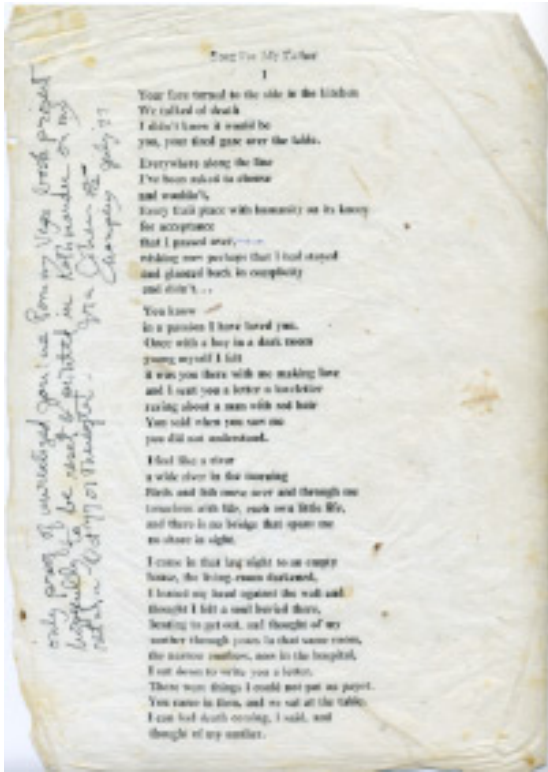 Song For My Father
I
Your face turned to the side in the kitchen
We talked of death
I didn't know it would be
you, your tired gaze over the table.
Everywhere along the line
I've been asked to choose
and wouldn't,
Every place with humanity on its knees
for acceptance
that I passed over,
wishing now perhaps that I had stayed
and glanced back in complicity
and didn't...
You know
in a passion I have loved you.
Once with a boy in a dark room
young myself I felt
it was you there with me making love
and I sent you a letter a loveletter
raving about a man with red hair
You said when you saw me
you did not understand.
I feel like a river
a wide river in the morning
Birds and fish move over and through me
conscious with life, each own little life,
and there is no bridge that spans me
no shore in sight.
I came in that night to an empty
house, the living-room darkened,
I leaned my head against the wall and
thought I felt a soul buried there,
beating to get out, and thought of my
mother through years in that same room,
the narrow, now in the hospital,
I sat down to write you a letter.
There were things I could not put on paper.
You came in then, and we sat at the table.
I can feel death coming, I said, and
thought of my mother.
only proof of unrealized Janine Pommy Vega book project
hopefully to be reset & printed in Kathmandu on my
return Ira Cohen